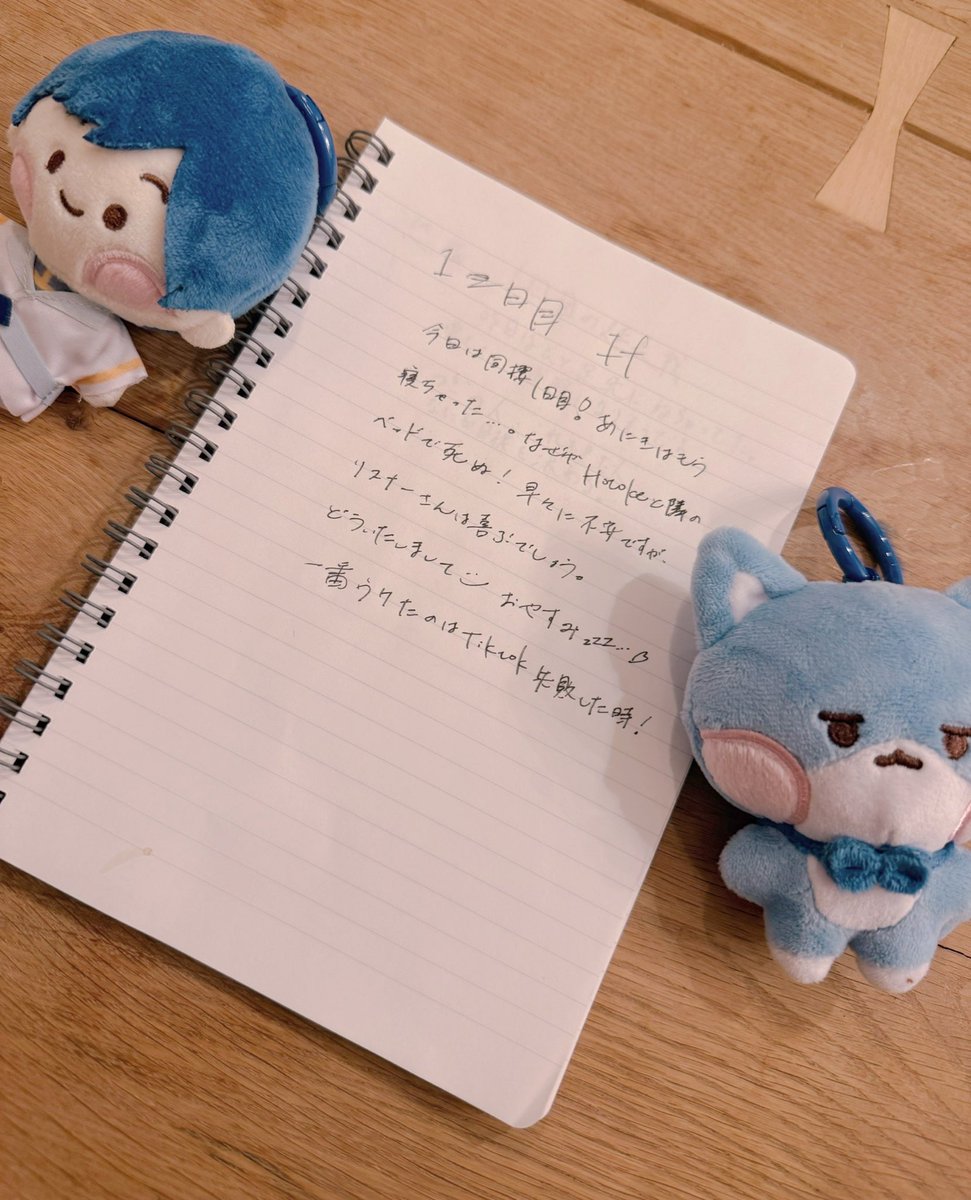 12日目 If
今日は同棲1日目！あにきはもう
寝ちゃった…。なぜかHotokeと隣の
ベッドで死ぬ！早々に不幸ですが、
リスナーさんは喜ぶでしょう。
どういたしまして:) おやすみzzz…
一番うけたのはTiktok失敗した時！